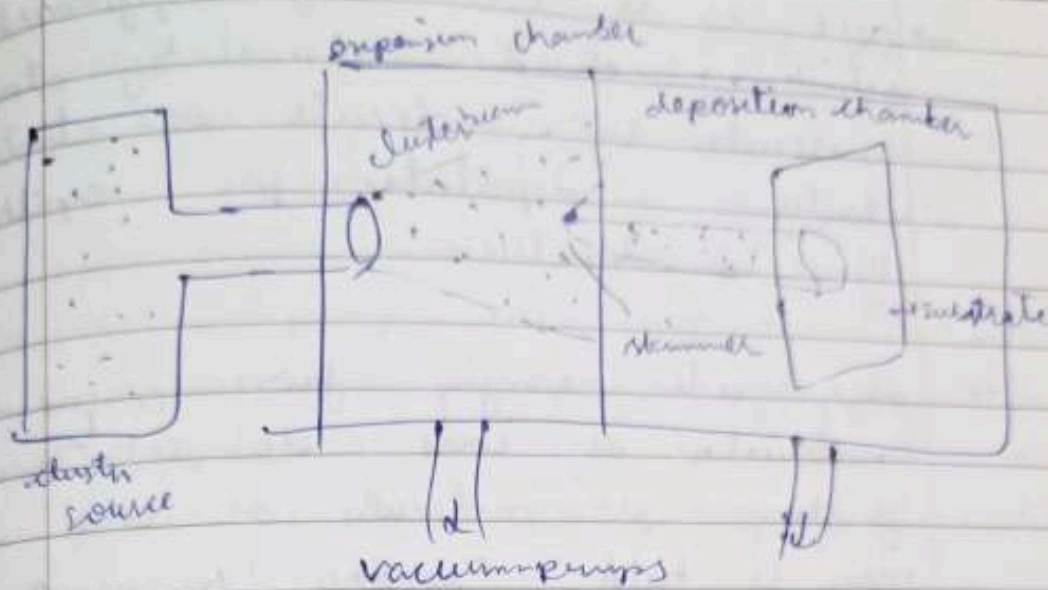 expansion chamber
deposition chamber
skimmer
substrate
cluster
source
vacuumpumps